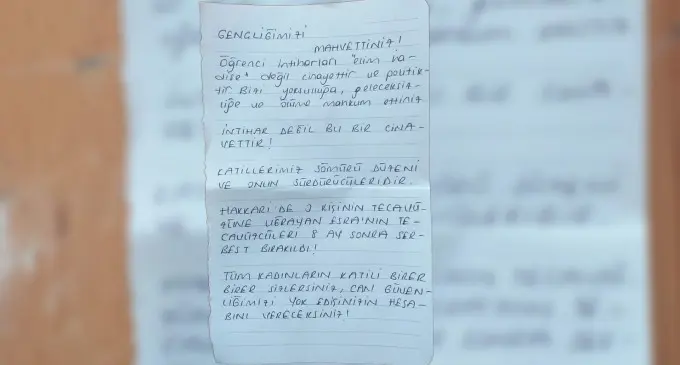 GENÇLİĞİMİZİ
MAHVETTİNİZ!
Öğrenci intiharları "elim ha-
dise" değil cinayettir ve politik-
tir Bizi yoksulluğa, geleceksiz-
liğe ve ölüme mahkum ettiniz
İNTİHAR DEĞİL BU BİR CİNA-
YETTİR!
KATİLLERİMİZ SÖMÜRÜ DÜZENİ
VE ONUN SÜRDÜRÜCÜLERİDİR.
HAKKARİ'DE 3 KİŞİNİN TECAVÜ-
ZÜNE UĞRAYAN ESRA'NIN TE-
CAVÜZCÜLERİ 8 AY SONRA SER-
BEST BIRAKILDI!
TÜM KADINLARIN KATİLİ BİRER
BİRER SİZLERSİNİZ, CAN GÜVEN-
LİĞİMİZİ YOK EDİŞİNİZİN HESA-
BINI VERECEKSİNİZ!